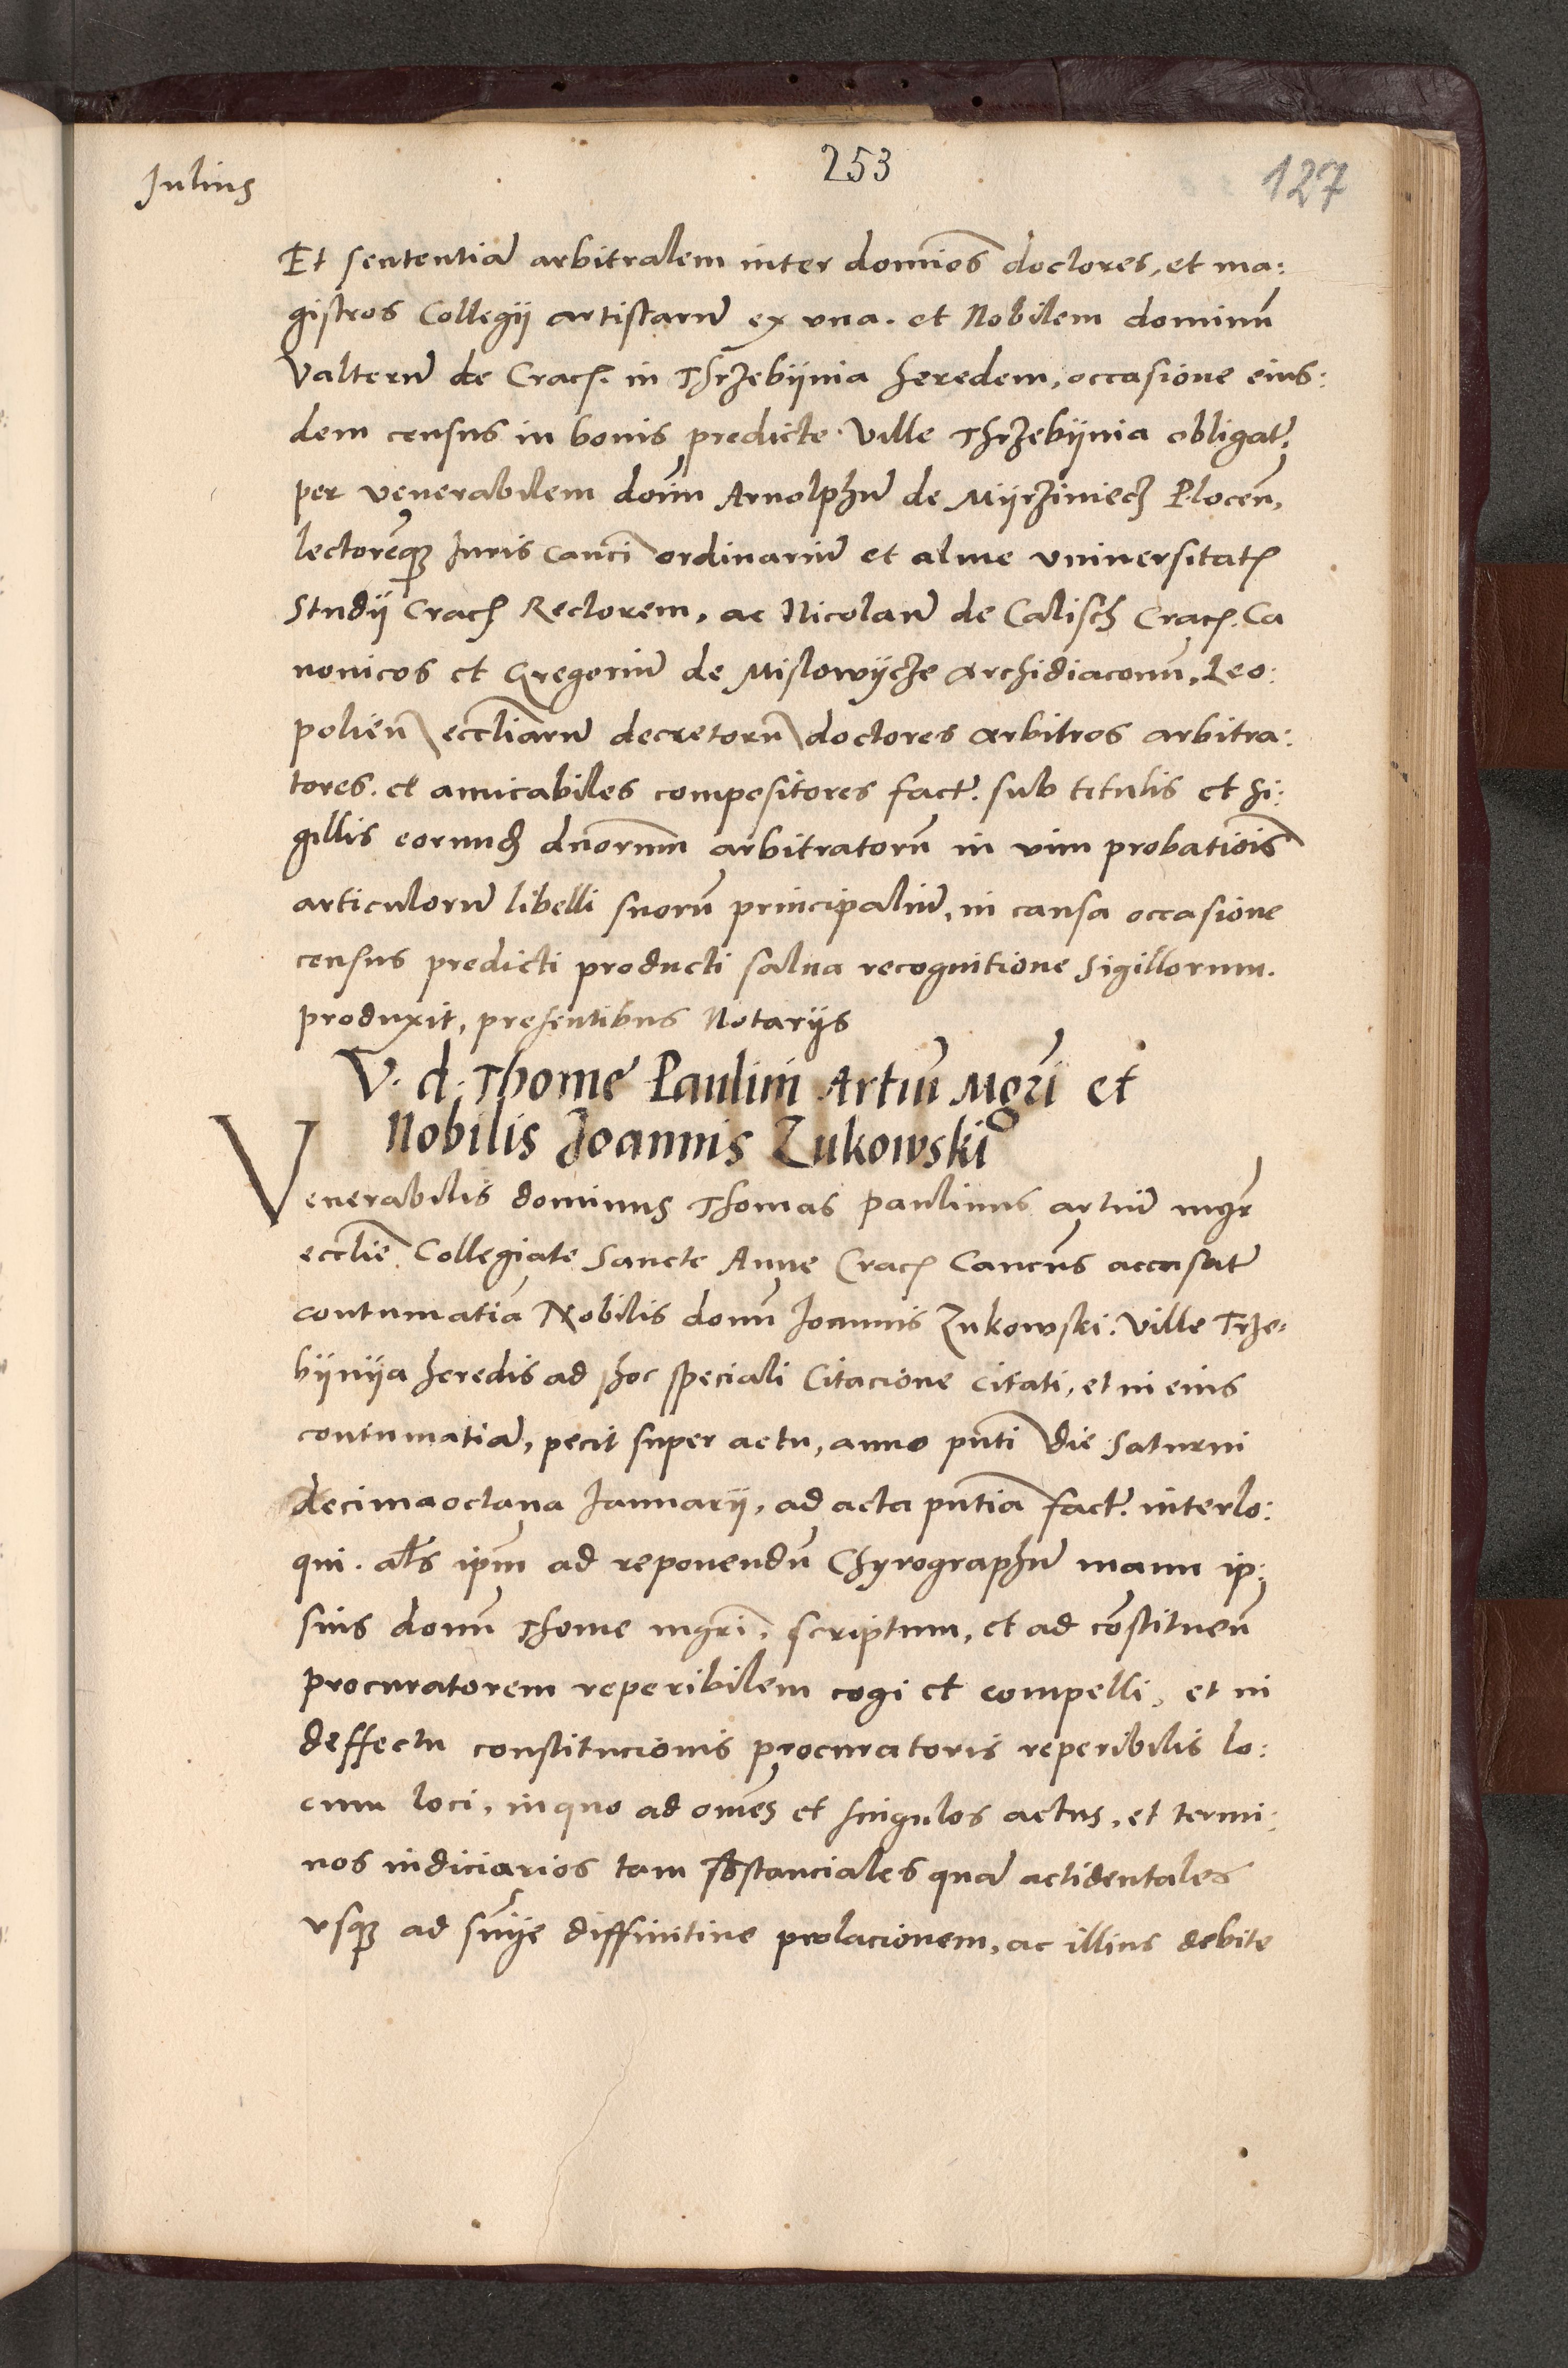 Iulius
253
127
Et sententiā arbitralem inter domīos doctores, et ma:
gistros Collegij artistarū ex vna. et Nobilem dominū
Valterū de Crach. in Thrzebijnia heredem, occasione eius:
dem census in bonis predicte Ville Thrzebijnia obligat.
per venerabilem dom̄ Arnolphū de Mijrziniech Plocen̄,
lectorēq3 Iuris Canci ordinariū et alme vniuersitatȩ
Studij Crach Rectorem, ac Nicolaū de Calisch Crach. Ca
nonicos et Gregoriū de Mislowijcze Archidiaconū, Leo:
polien̄ eccliarū decretorū doctores Arbitros arbitra:
tores. et amicabiles compositores fact. sub titulis et si:
gillis eorund dnorum arbitratorū in vim probatiōis
articulorū libelli suorū principaliū, in causa occasione
census predicti producti salua recognitione Sigillorum.
produxit, presentibus Notarijs
V. d. Thome Paulini Artiū Mgr̄i et
Nobilis Joannis Zukowski
Venerabilis dominus Thomas Paulinus artiū mgr̄
ecclie Collegiate Sancte Anne Crach Cancus accusat
contumatiā Nobilis domn̄ Joannis Zukowski. Ville Trze-
bijnija heredis ad hoc speciali Citacione citati, et in eius
contumatiā, petit super actu, anno pn̄ti die Saturni
decimaoctaua Januarij, ad acta pn̄tia fact. interlo:
qui. al̄s ip̄m ad reponendū Chyrographū manu ip:
sius domn̄ Thome mgr̄i. scriptum, et ad cōstituen̄
procuratorem reperibilem cogi et compelli, et in
deffectu constitucionis procuratoris reperibilis lo:
cum loci, in quo ad om̄es et singulos actus, et termi:
nos iudiciarios tam sbstanciales quā actidentales
vsq3 ad sn̄ije diffinitiue prolacionem, ac illius debite